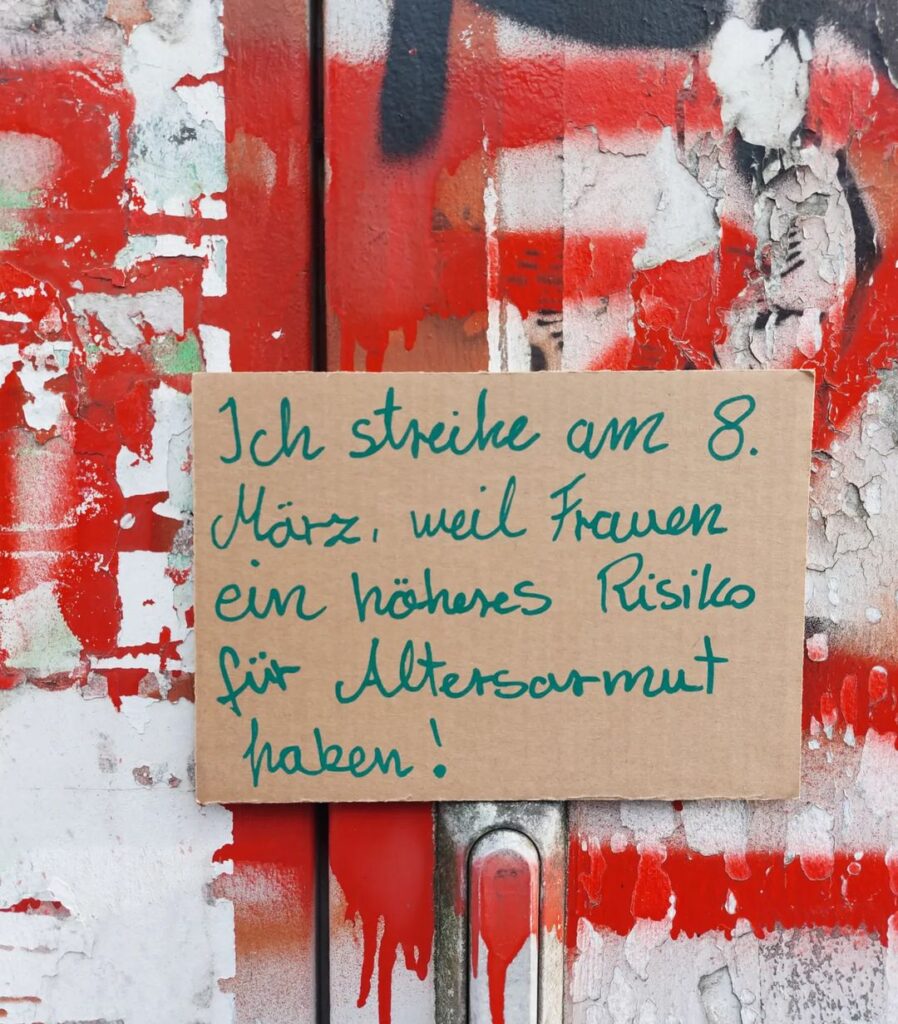 Ich streike am 8.
März, weil Frauen
ein höheres Risiko
für Altersarmut
haben!